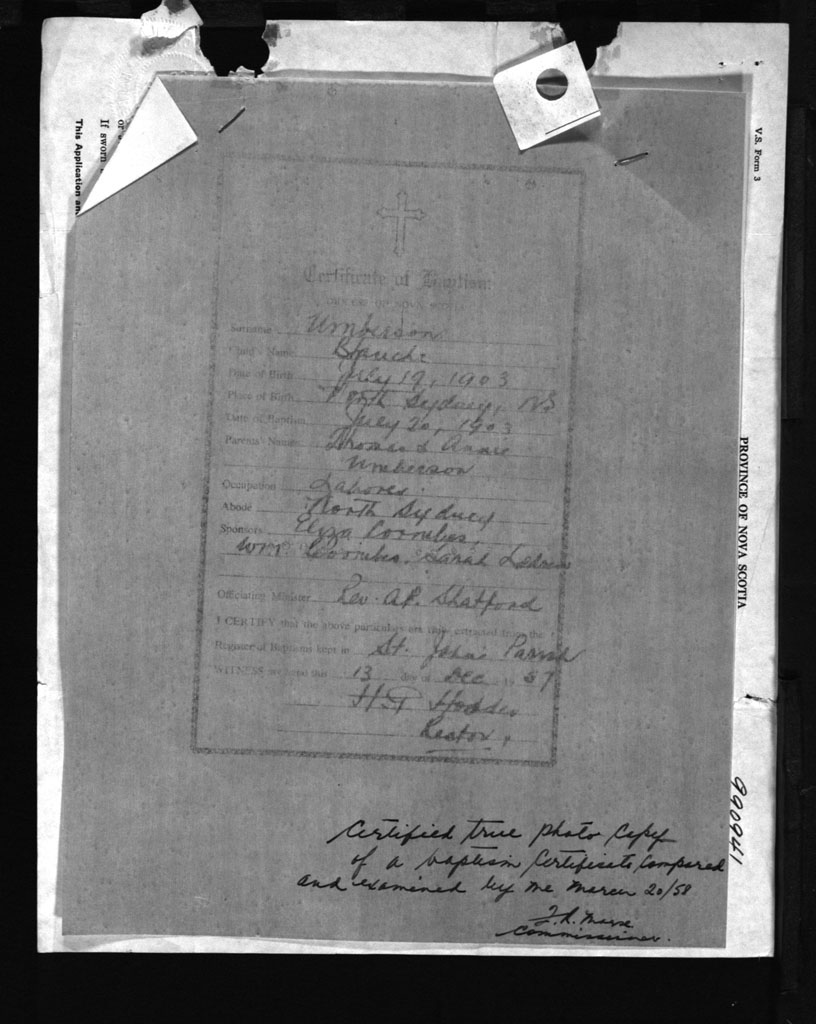 V.S. Form 3
This Application an
If sworn
or
PROVINCE OF NOVA SCOTIA
990941
Certificate of Baptism
DIOCESE OF NOVA SCOTIA
Surname Umberson
Child's Name Blanche
Date of Birth July 19, 1903
Place of Birth North Sydney, NS
Date of Baptism July 20, 1903
Parents' Names Thomas & Annie
Umberson
Occupation Laborer.
Abode North Sydney
Sponsors Eliza Coombs,
Wm. Coombs. Sarah
Officiating Minister Rev. A.P. Shatford
I CERTIFY that the above particulars are duly extracted from the
Register of Baptisms kept in St. John's Parish
WITNESS my hand this 13 day of Dec 19 57
Rector.
Certified true photo copy
of a baptism Certificate, Compared
and examined by me March 20/58
Commissioner.